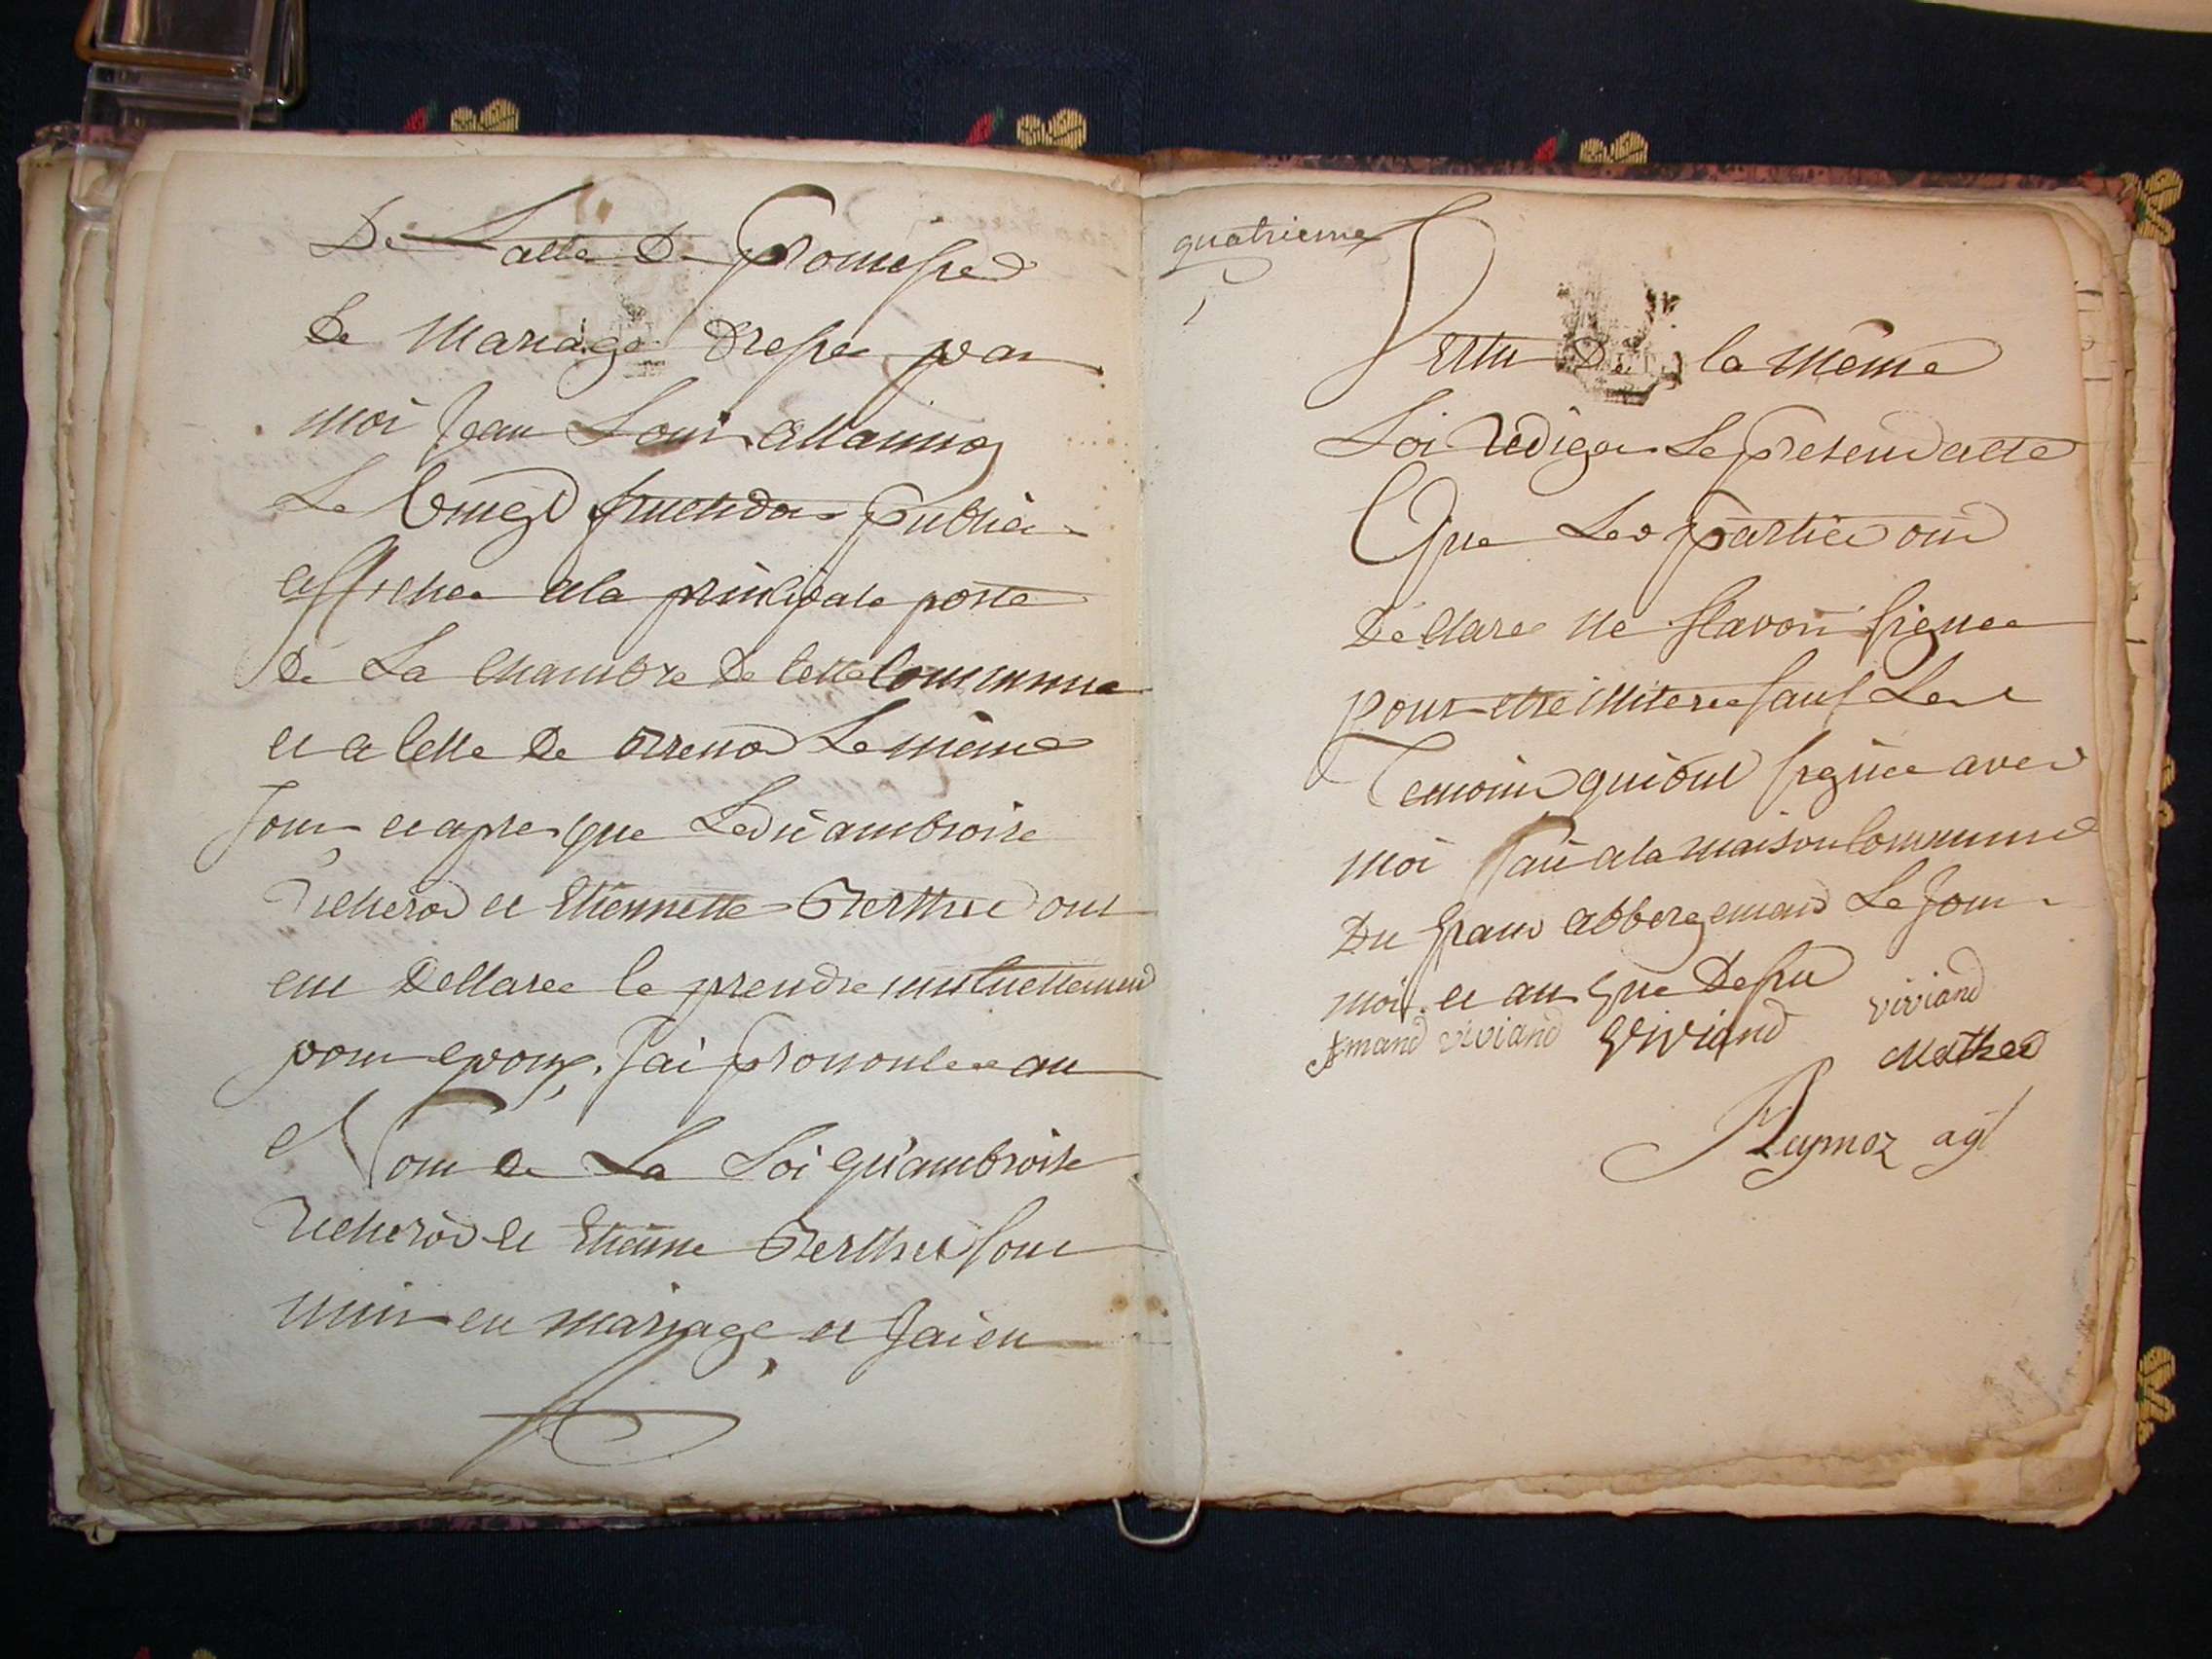 De Lacte De promesse
De Mariage Dressé par
moi Jean Louis
Le vingt fructidor publié
affichee a la principale porte
de La Chambre de Cette Commune
et a Celle de Brenod Le même
Jour et apres que Ledit ambroise
et Etiennette Berthet ont
eut Declaree le prendre mutuellement
pour epoux, Jai prononcee au
Nom de La Loi qu'ambroise
et Etienne Berthet sont
unir en mariage et Jai en
quatrieme
Vertu De la même
Loi rediger Le present acte
Que Les parties ont
Declaree ne Savoir signee
pour être illiteree sauf Les
Temoins qui ont signée avec
moi fait a la maison Commune
Du grand abbergemand Le Jour
mois et an que Dessu
viviand
Armand viviand Viviand
Mathet
Reymoz agt